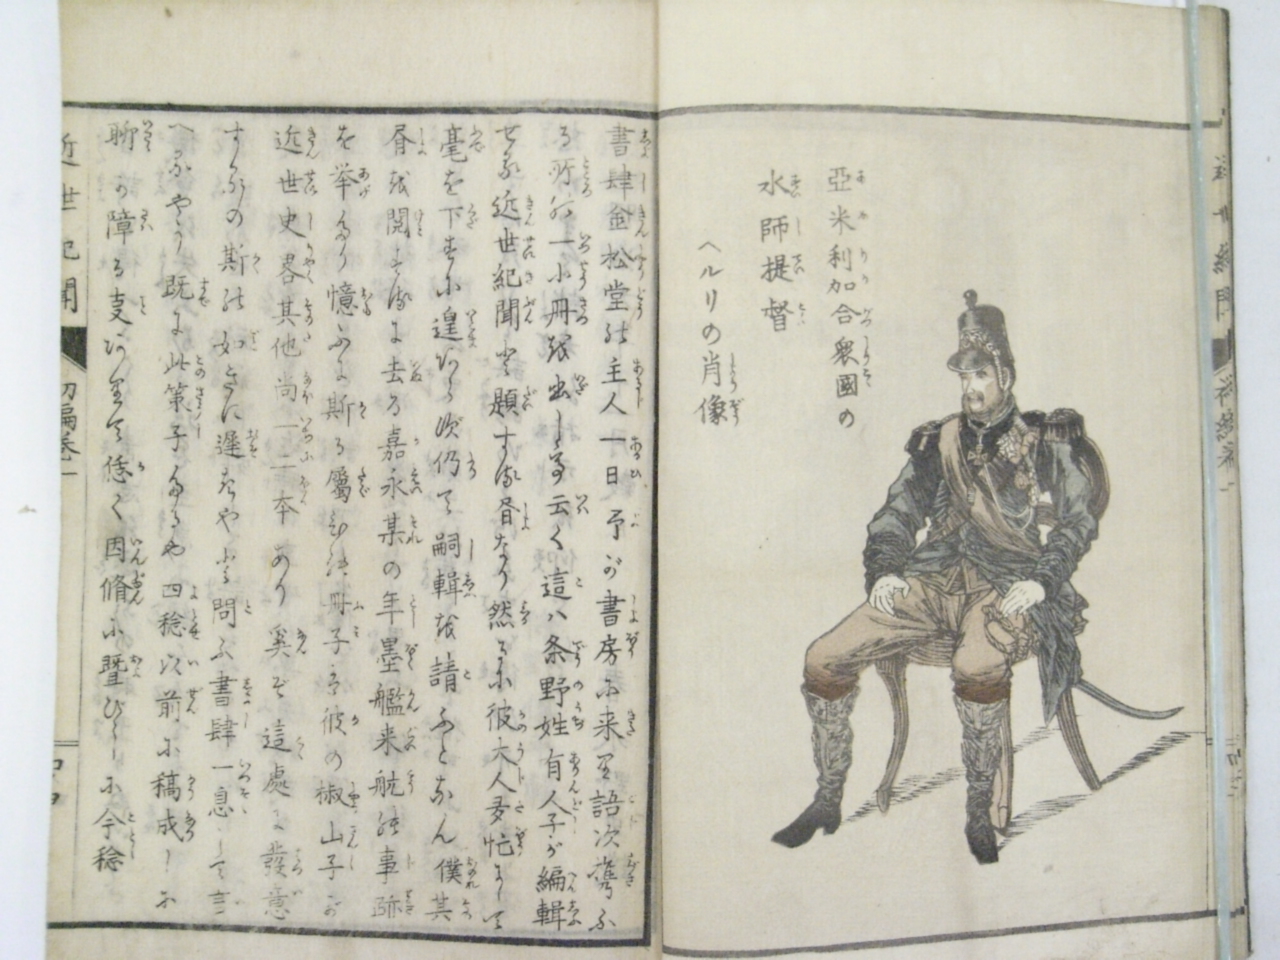 亞米利加合衆國の
水師提督
ヘルリの肖像
書肆金松堂の主人一日予が書房に来り語次携ふ
る所の一小冊を出し云く這ハ条野姓有人子が編輯
せる近世紀聞と題する書なり然るに彼大人多忙にして
毫を下すに遑あらず仍て嗣輯を請ふとなん僕其
書を閲するに去る嘉永某の年墨艦来航の事跡
を挙たり憶ふに斯る属ひの冊子ハ彼の椒山子が
近世史畧其他尚一二本あり奚ぞ這處に發意
するの斯の如きに遅きやと問ふ書肆一息して言
へるやう既に此策子たるや四稔以前に稿成しに
聊か障る支ありて恁く因循に曁びしに今稔
近世紀聞
初編巻一